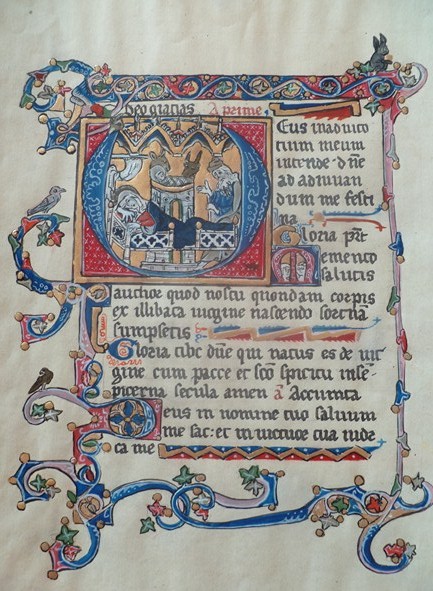 Deo gracias A prime,
Eus in adiuto
rium meum
intende · dne
ad adiuuan
dum me festi
na Gloria prt
emento
salutis
author quod nostri quondam corpis
ex illibata uirgine nascendo
sumpsetis
Gloria tibi dne qui natus es de uir
gine cum patre et sco spiritu
secula amen a
eus in nomine tuo saluum
me fac: et in uirtute tua iude
ca me